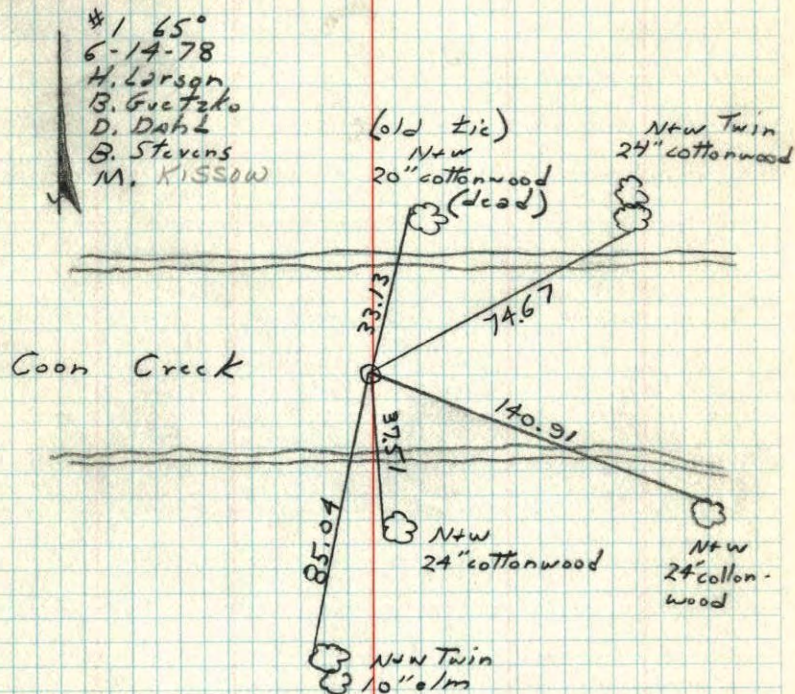 #1 65°
6-14-78
H. Larson
B. Gvetzko
D. Dahl
B. Stevens
M. KISSOW
(old tie)
N+W
20" cottonwood
(dead)
N+W Twin
24" cottonwood
33.13
74.67
Coon Creek
140.91
37.51
85.04
N+W
24" cottonwood
N+W
24" cotton-
wood
N+W Twin
10" elm